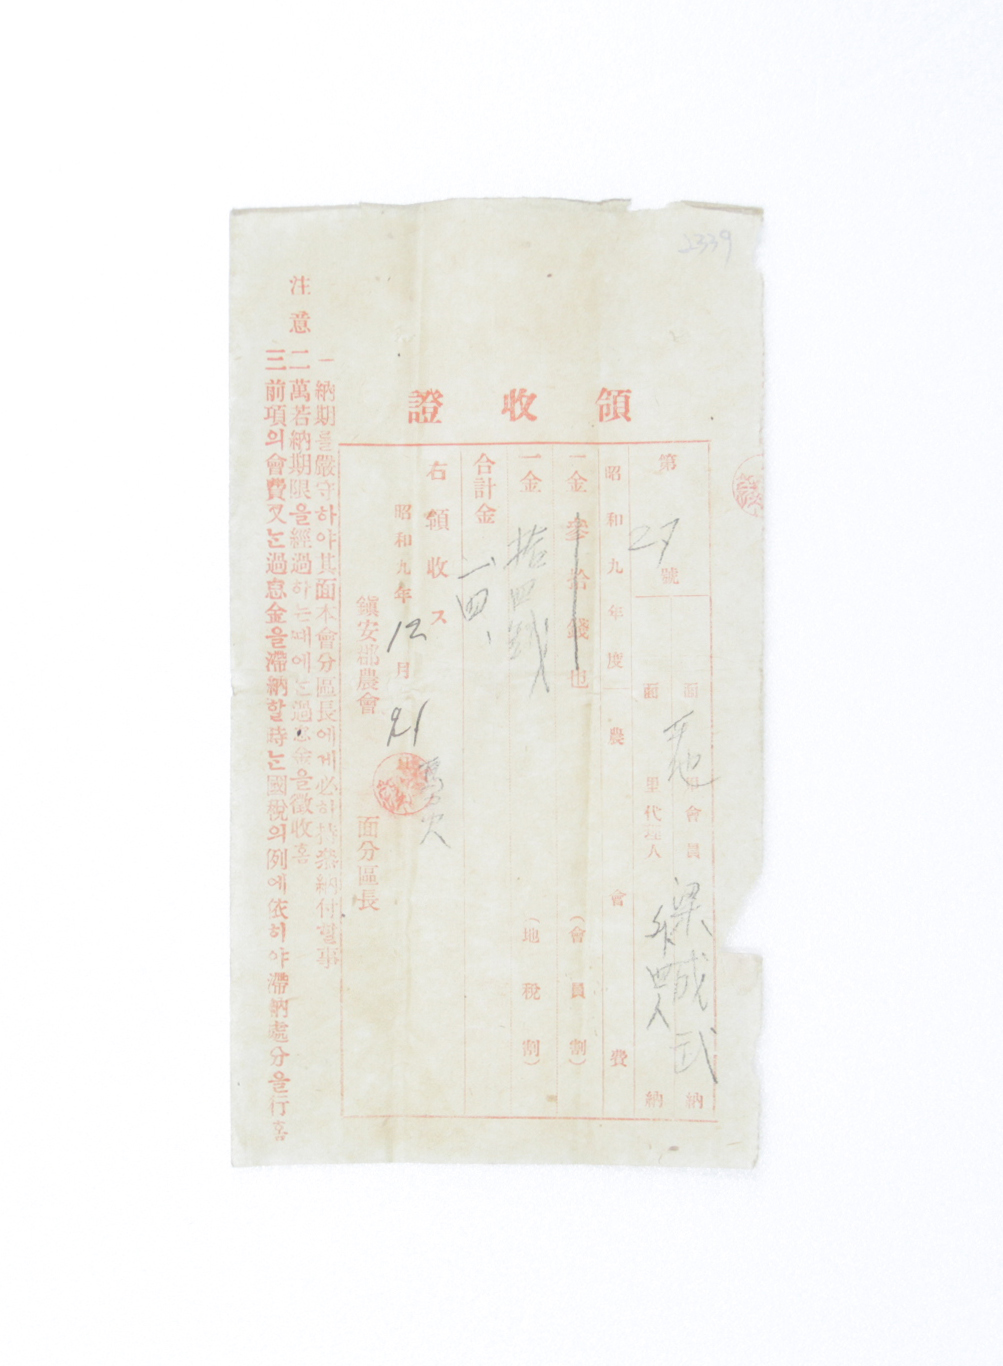 2339
領收證
第27號
面 里會員 梁 成 納
面 里代理人 納
昭和九年度農會費
一金參拾錢也（會員割）
一金拾四戔（地稅割）
合計金 一四
右領收ス
昭和九年12月21
鎭安郡農會 面分區長
注意
一 納期를嚴守하야其面本會分區長에게必히持參納付할事
二 萬若納期限을經過하는때에는過怠金을徵收홈
三 前項의會費又는過怠金을滯納할時는國稅의例에依히야滯納處分을行홈